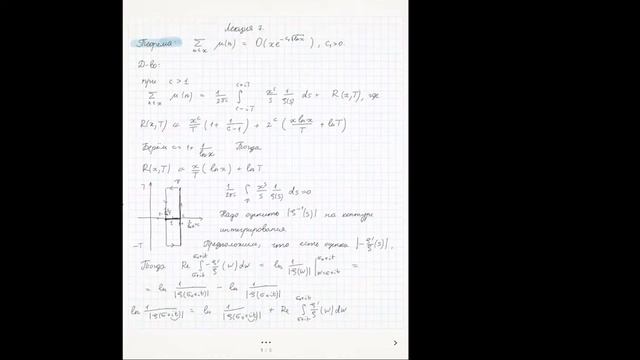 Лекция 7.
Теорема. ∑_{n≤x} μ(n) = O(x e^{-c₁√lnx}), c₁>0.
Д-во:
при c > 1
∑_{n≤x} μ(n) = 1/2πi ∫_{c-iT}^{c+iT} x^s/s 1/ζ(s) ds + R(x,T), где
R(x,T) ≪ x^c/T (1 + 1/(c-1)) + 2^c (x lnx/T + lnT)
Берём c = 1 + 1/lnx Тогда
R(x,T) ≪ x/T (lnx) + lnT
T
-T
1/2πi ∫_Γ x^s/s 1/ζ(s) ds = 0
Надо оценить |ζ^{-1}(s)| на контуре
интегрирования.
Предположим, что есть оценка |-ζ'/ζ(s)|,
Тогда Re ∫_{σ+it}^{σ₀+it} -ζ'/ζ (w) dw = ln 1/|ζ(w)| |_{w=σ+it}^{σ₀+it} =
= ln 1/|ζ(σ₀+it)| - ln 1/|ζ(σ+it)|
ln 1/|ζ(σ+it)| = ln 1/|ζ(σ₀+it)| + Re ∫_{σ+it}^{σ₀+it} ζ'/ζ (w) dw